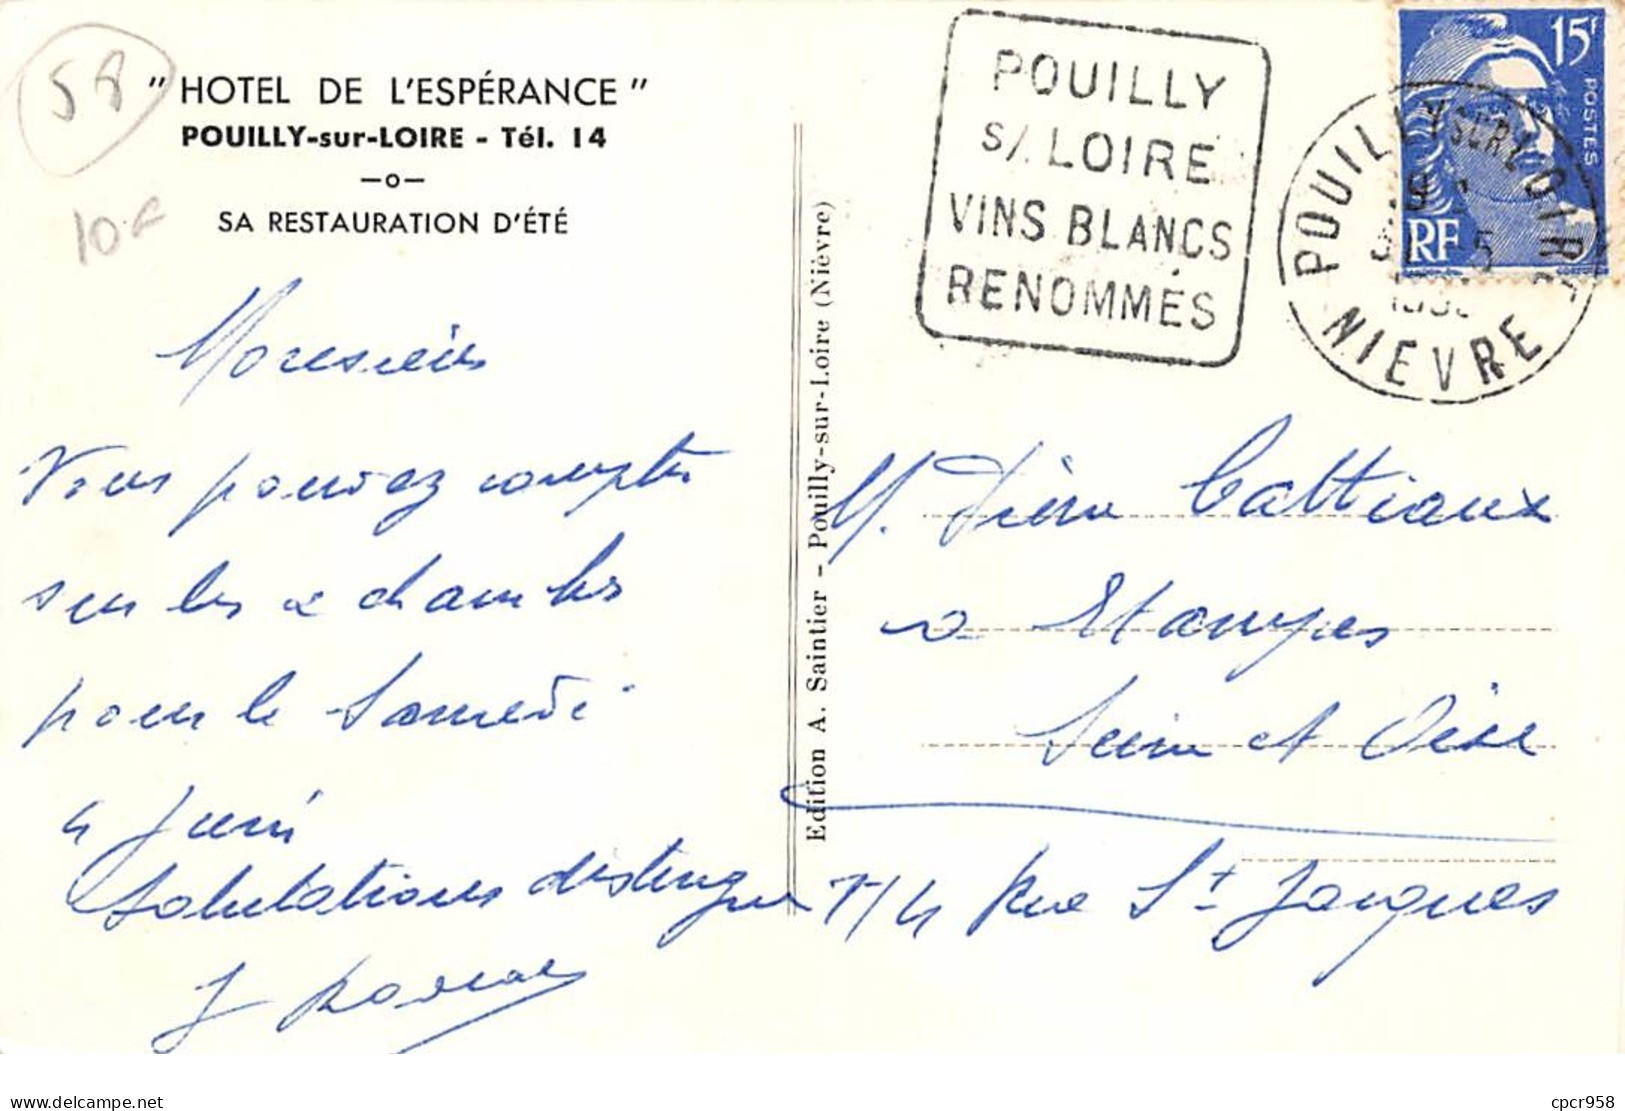 58
" HOTEL DE L'ESPÉRANCE "
POUILLY-sur-LOIRE - Tél. 14
—o—
SA RESTAURATION D'ÉTÉ
10F
Monsieur
Vous pouvez compter
sur les 2 chambres
pour le Samedi
4 Juin
Salutations distingués
J
Edition A. Saintier - Pouilly-sur-Loire (Nièvre)
POUILLY
S/. LOIRE
VINS BLANCS
RENOMMÉS
15F
POSTES
RF
POUILLY SUR LOIRE
NIEVRE
M. Pierre Cattiaux
à Etampes
Seine et Oise
74 Rue St Jacques
delcampe.net
cpcr958